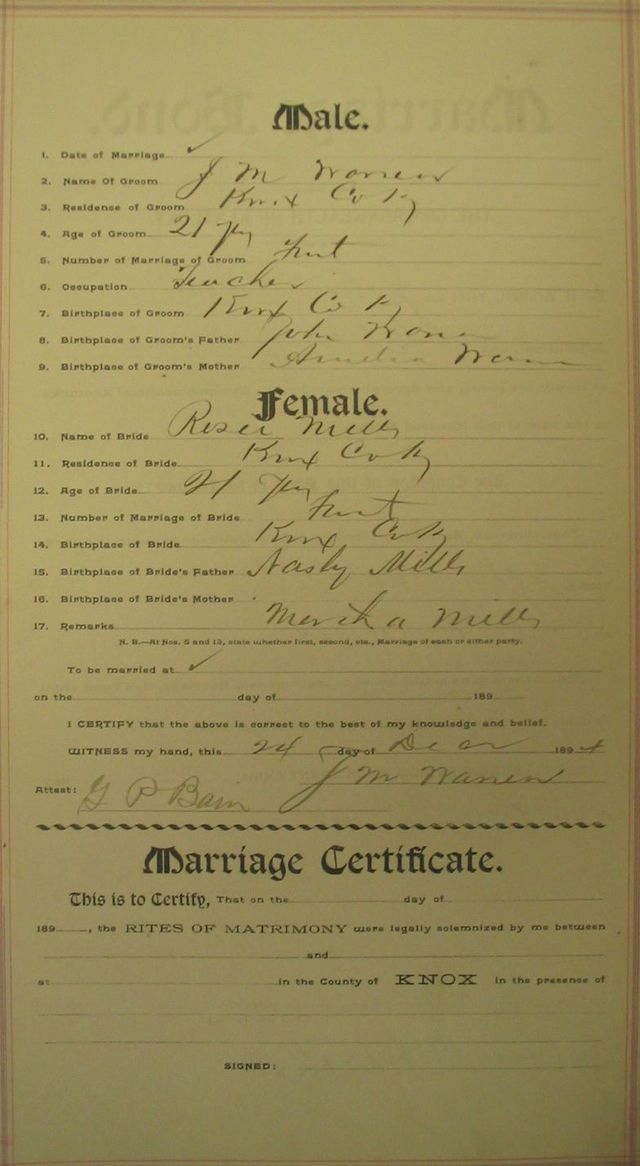 Male.
1. Date of Marriage ✓
2. Name Of Groom J M Warren
3. Residence of Groom Knox Co Ky
4. Age of Groom 21 yrs
5. Number of Marriage of Groom First
6. Occupation Teacher
7. Birthplace of Groom Knox Co Ky
8. Birthplace of Groom's Father John Warren
9. Birthplace of Groom's Mother Warren
Female.
10. Name of Bride Mills
11. Residence of Bride Knox Co Ky
12. Age of Bride 21 yrs
13. Number of Marriage of Bride First
14. Birthplace of Bride Knox Co Ky
15. Birthplace of Bride's Father Nasby Mills
16. Birthplace of Bride's Mother
17. Remarks Mills
N. B.—At Nos. 5 and 13, state whether first, second, etc., Marriage of each or either party.
To be married at ✓
on the day of 189
I CERTIFY that the above is correct to the best of my knowledge and belief.
WITNESS my hand, this 24 day of 1894
J M Warren
Attest: G P Bain
Marriage Certificate.
This is to Certify, That on the day of
189 , the RITES OF MATRIMONY were legally solemnized by me between
and
at in the County of KNOX in the presence of
SIGNED: